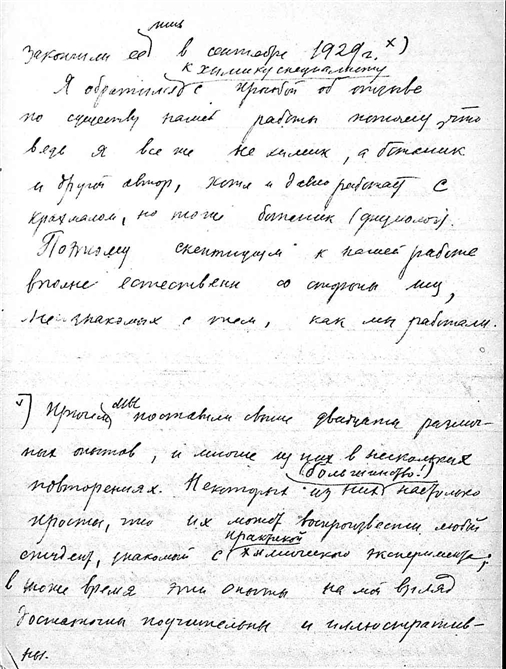 лишь
закончили её в сентябре 1929 г. х)
к химику специалисту
Я обратился с просьбой об отзыве
по существу нашей работы потому, что
ведь я все же не химик, а ботаник
и другой автор, хотя и давно работает с
крахмалом, но тоже ботаник (физиолог).
Поэтому скептицизм к нашей работе
вполне естественен со стороны лиц,
не знакомых с тем, как мы работали.
х) Причем мы поставили свыше двадцати различ-
ных опытов, и многие из них в нескольких
(большинство!)
повторениях. Некоторые из них настолько
просты, что их может воспроизвести любой
практикой
студент, знакомый с химического эксперимента;
в тоже время эти опыты на мой взгляд
достаточны поучительны и иллюстратив-
ны.